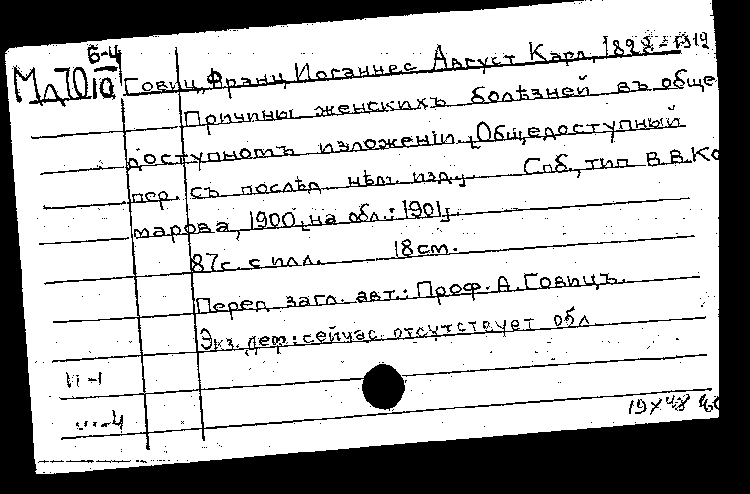 Б-4
Мд70/10
Говиц, Франц Иоганнес Август Карл, 1828-1912
Причины женскихъ болѣзней въ обще
доступномъ изложенiи. [Общедоступный
пер. съ послѣд. нѣм. изд.]. Спб., тип В.В.Ко
марова, 1900[на обл.: 1901].
87с. с илл. 18см.
Перед загл. авт.: Проф. А. Говицъ.
Экз. деф: сейчас отсутствует обл
VI-1
19 X 48